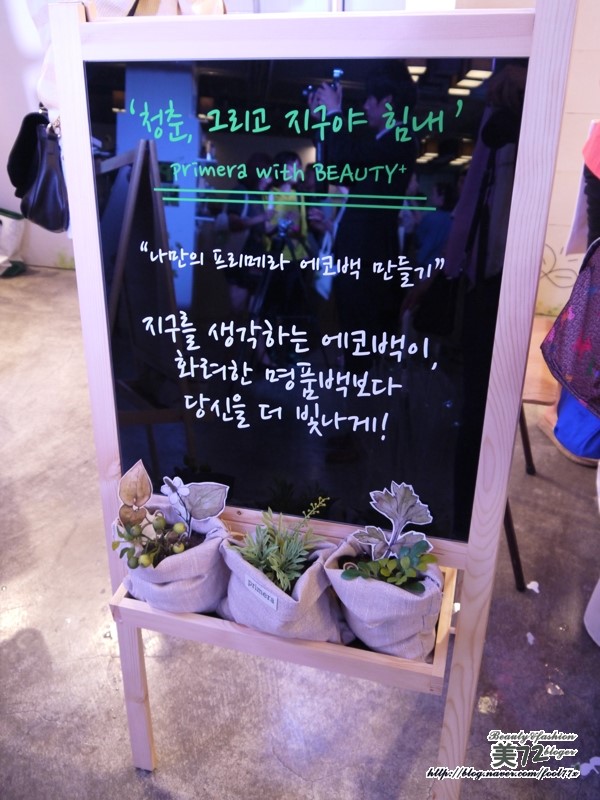 ‘청춘, 그리고 지구야 힘내’
primera with BEAUTY+
“나만의 프리메라 에코백 만들기”
지구를 생각하는 에코백이,
화려한 명품백보다
당신을 더 빛나게!
primera
Beauty&fashion
美72 bloger
http://blog.naver.com/fool77x